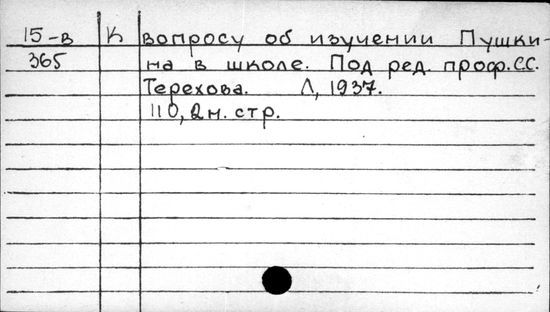 15-в К вопросу об изучении Пушки-
365 на в школе. Под ред. проф. С.С.
Терехова. Л, 1937.
110, 2 н. стр.